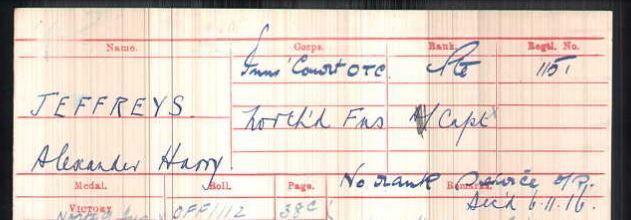 Name. Corps. Rank. Regtl. No.
Inns' Court OTC. Pte 1151
JEFFREYS. North'd Fus A/Capt
Alexander Harry.
No rank
Medal. Roll. Page. Remarks.
Dec'd 6.11.16.
Victory OFF/112 38C